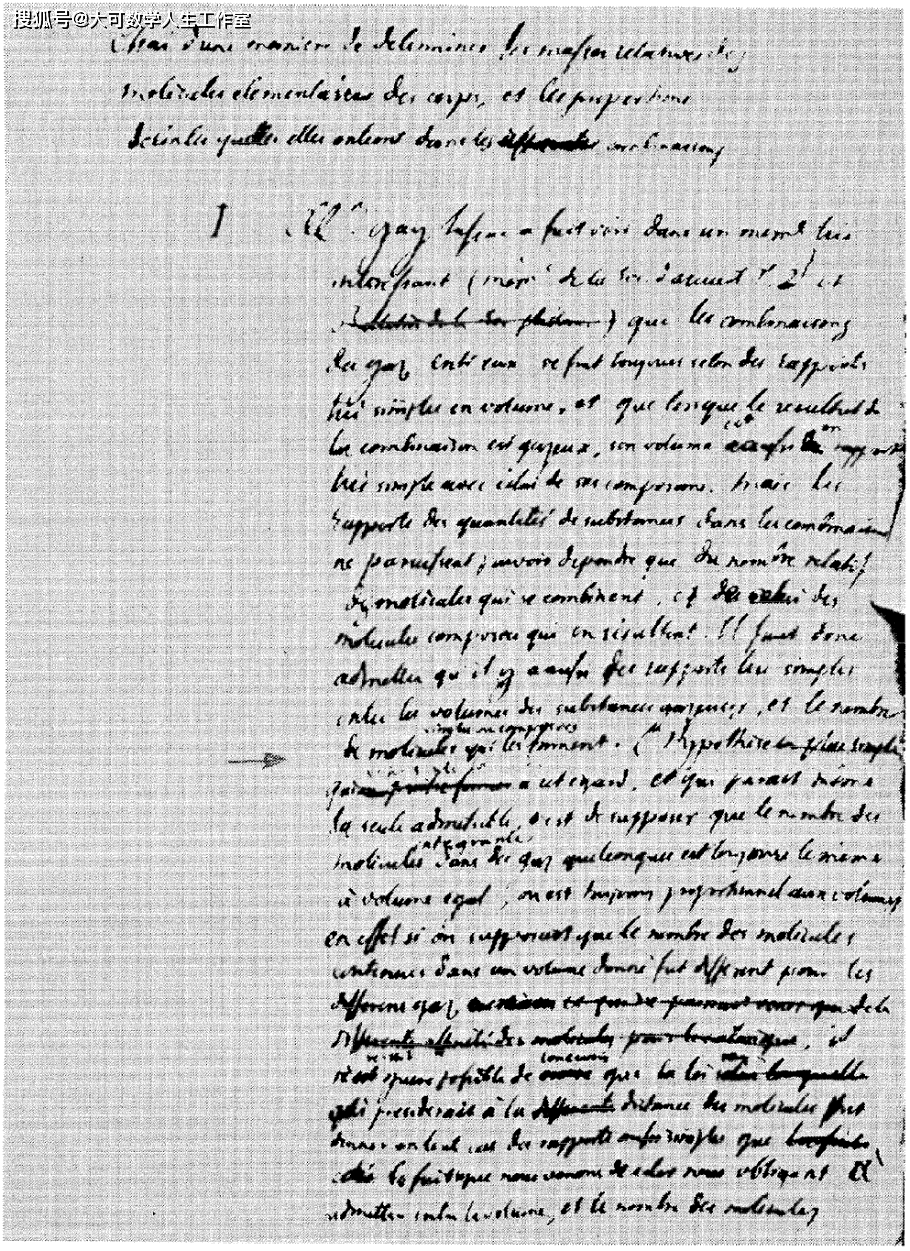 搜狐号@大可数学人生工作室
Essai d'une maniere de determiner les masses relatives des
molécules elementaires des corps, et les proportions
selon lesquelles elles entrent dans les combinaisons
I Mr Gay Lussac a fait voir dans un mem. très
interessant (mem. de la Soc. d'arcueil T. 2) et
) que les combinaisons
des gaz entr'eux se font toujours selon des rapports
très simples en volume, et que lorsque le resultat de
la combinaison est gazeux, son volume est en rapport
très simple avec celui de ses composans. mais les
rapports des quantités de substances dans les combinaisons
ne paroissent pouvoir dependre que du nombre relatif
des molécules qui se combinent, et des
molecules composées qui en résultent. Il faut donc
admettre qu'il y a aussi des rapports très simples
entre les volumes des substances gazeuses, et le nombre
simples ou composées
de molécules qui les forment. L'hypothèse la plus simple
a cet egard, et qui parait même
la seule admissible, est de supposer que le nombre des
integrantes
molécules dans des gaz quelconques est toujours le même
à volume egal, ou est toujours proportionnel aux volumes
en effet si on supposait que le nombre des molécules
contenues dans un volume donné fut different pour les
differens gaz de la
il
concevoir
possible de que la loi
qui presiderait à la distance des molécules put
donner en tout cas des rapports aussi simples que
les faits que nous venons de citer nous obligent à
admettre entre le volume, et le nombre des molécules